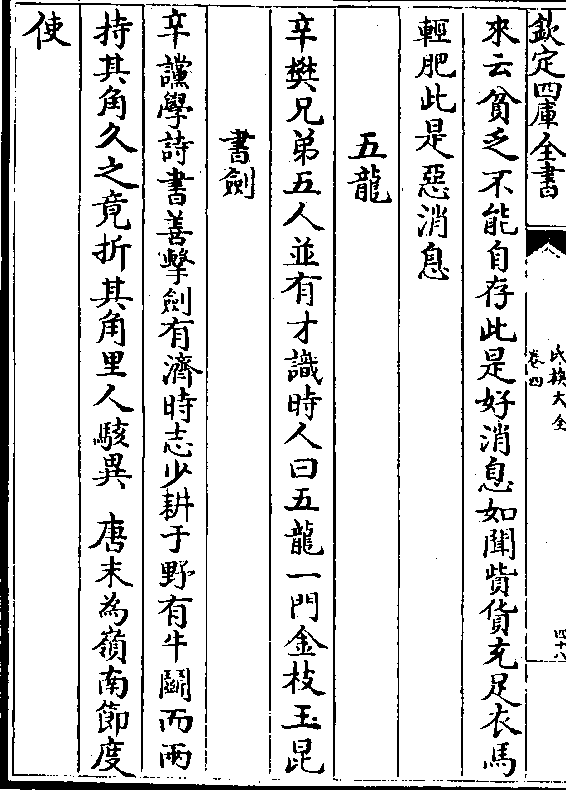 欽定四庫全書
氏族大全
卷四
四十八
來云貧乏不能自存此是好消息如聞貲貨充足衣馬
輕肥此是惡消息
五龍
辛樊兄弟五人並有才識時人曰五龍一門金枝玉昆
書劍
辛讜學詩書善擊劍有濟時志少耕于野有牛鬬而兩
持其角久之竟折其角里人駭異 唐末為嶺南節度
使